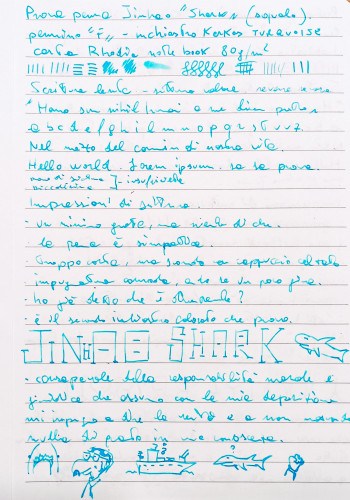 Prova penna Jinhao "Shark" (squalo).
pennino "F" - inchiostro Kerkos TURQUOISE
carta Rhodia note book 80g/m²
Scrittura lenta - scrittura veloce. reverse
a b c d e f g h i l m n o p q r s t u v z
Nel mezzo del cammin di nostra vita.
Hello world. Lorem ipsum. sa sa prova.
Impressioni di scrittura.
· un minimo gratta, ma niente di che.
· la penna è simpatica.
· troppo corta, ma usando a cappuccio calzato
impugnatura comoda,
· ho già detto che è
· è il secondo inchiostro colorato che provo.
JINHAO SHARK
· consapevole della responsabilità morale e
giuridica che assumo con la mia deposizione
mi impegno a dire la verità e a non nascondere
nulla di quanto in mia conoscenza.